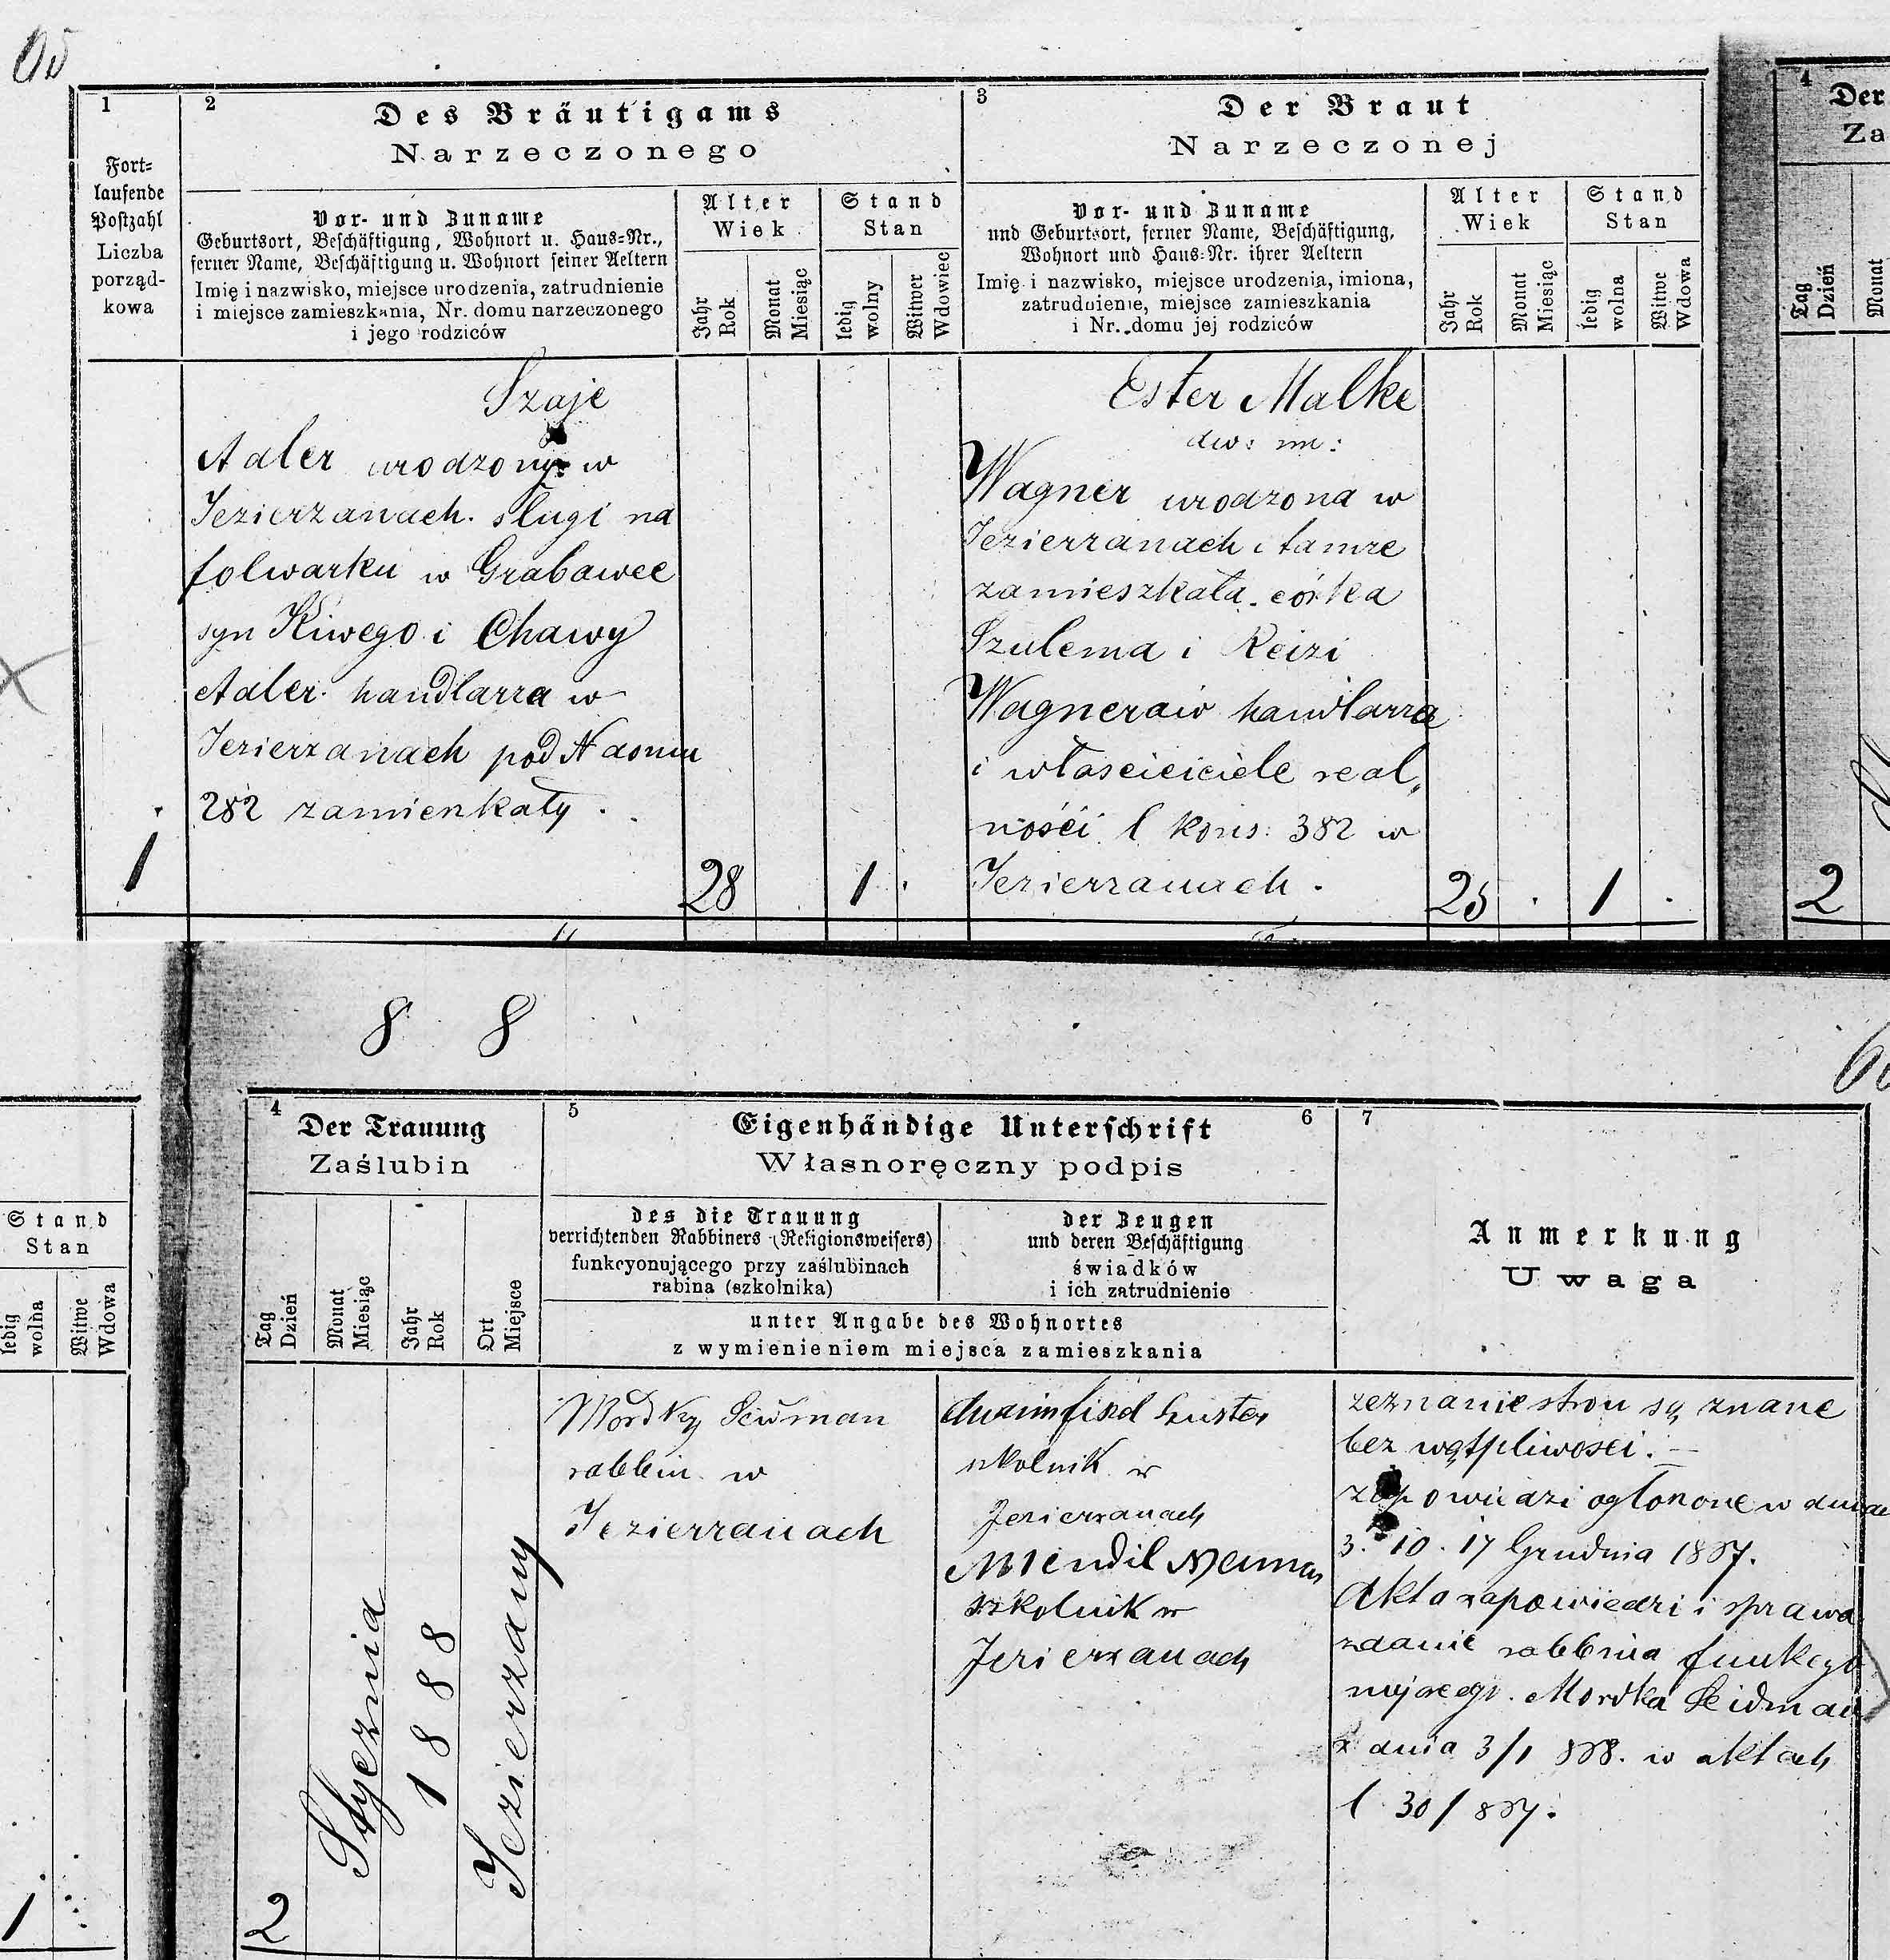 1
Fort=
laufende
Postzahl
Liczba
porząd-
kowa
2
Des Bräutigams
Narzeczonego
Vor- und Zuname
Geburtsort, Beschäftigung, Wohnort u. Haus=Nr.,
ferner Name, Beschäftigung u. Wohnort seiner Aeltern
Imię i nazwisko, miejsce urodzenia, zatrudnienie
i miejsce zamieszkania, Nr. domu narzeczonego
i jego rodziców
Alter
Wiek
Jahr
Rok
Monat
Miesiąc
Stand
Stan
ledig
wolny
Witwer
Wdowiec
3
Der Braut
Narzeczonej
Vor- und Zuname
und Geburtsort, ferner Name, Beschäftigung,
Wohnort und Haus=Nr. ihrer Aeltern
Imię i nazwisko, miejsce urodzenia, imiona,
zatrudnienie, miejsce zamieszkania
i Nr. domu jej rodziców
Alter
Wiek
Jahr
Rok
Monat
Miesiąc
Stand
Stan
ledig
wolna
Witwe
Wdowa
4
Der
Za
Tag
Dzień
Monat
1
Szaje
Adler urodzony w
Jezierzanach. sługi na
folwarku w Grabawce
syn Kiwego i Chawy
Adler handlarza w
Jezierzanach pod
282 zamienkały.
28
1
Ester Malke
dws: im:
Wagner urodzona w
Jezierzanach i tamże
zamieszkała. córka
Szulema i Reizi
Wagneraiw handlarza
i własciciciele real„
ności l kons: 382 w
Jezierzanach.
25
1
2
8 8
Stand
Stan
ledig
wolna
Witwe
Wdowa
4
Der Trauung
Zaślubin
Tag
Dzień
Monat
Miesiąc
Jahr
Rok
Ort
Miejsce
5
Eigenhändige Unterschrift
6
Własnoręczny podpis
des die Trauung
verrichtenden Rabbiners (Religionsweisers)
funkcyonującego przy zaślubinach
rabina (szkolnika)
der Zeugen
und deren Beschäftigung
świadków
i ich zatrudnienie
unter Angabe des Wohnortes
z wymienieniem miejsca zamieszkania
7
Anmerkung
Uwaga
1
2
Stycznia
1888
Jezierzany
Mordky
rabbin w
Jezierzanach
Szuster
szkolnik w
Jezierzanach
Mendil Neuman
szkolnik w
Jezierzanach
zeznanie stron są znane
bez wątpliwosci.—
zapowiedzi ogłonone w dniach
3. 10. 17 Grudnia 1887.
Akta zapowiedzi i sprawo
zdanie rabbina funkcyo
nującego. Mordka Seidman
z dnia 3/1 888. w aktach
l. 30/887.